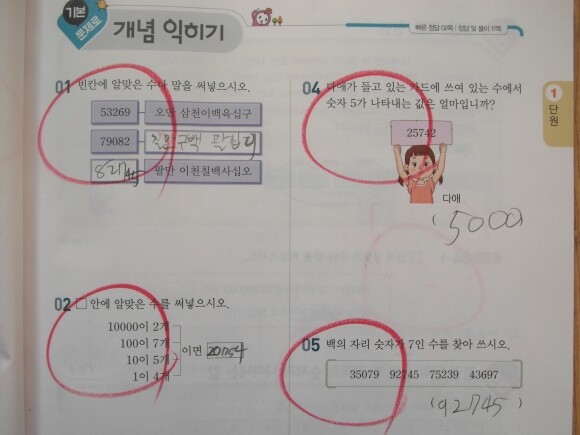 기본 문제로 개념 익히기
빠른 정답 02쪽 | 정답 및 풀이 17쪽
01 빈칸에 알맞은 수나 말을 써넣으시오.
53269 오만 삼천이백육십구
79082
82745 팔만 이천칠백사십오
02 □ 안에 알맞은 수를 써넣으시오.
10000이 2개
100이 7개
10이 5개
1이 4개
이면 20754
04 다애가 들고 있는 카드에 쓰여 있는 수에서
숫자 5가 나타내는 값은 얼마입니까?
25742
다애
(5000)
05 백의 자리 숫자가 7인 수를 찾아 쓰시오.
35079 92745 75239 43697
(92745)
1
단원